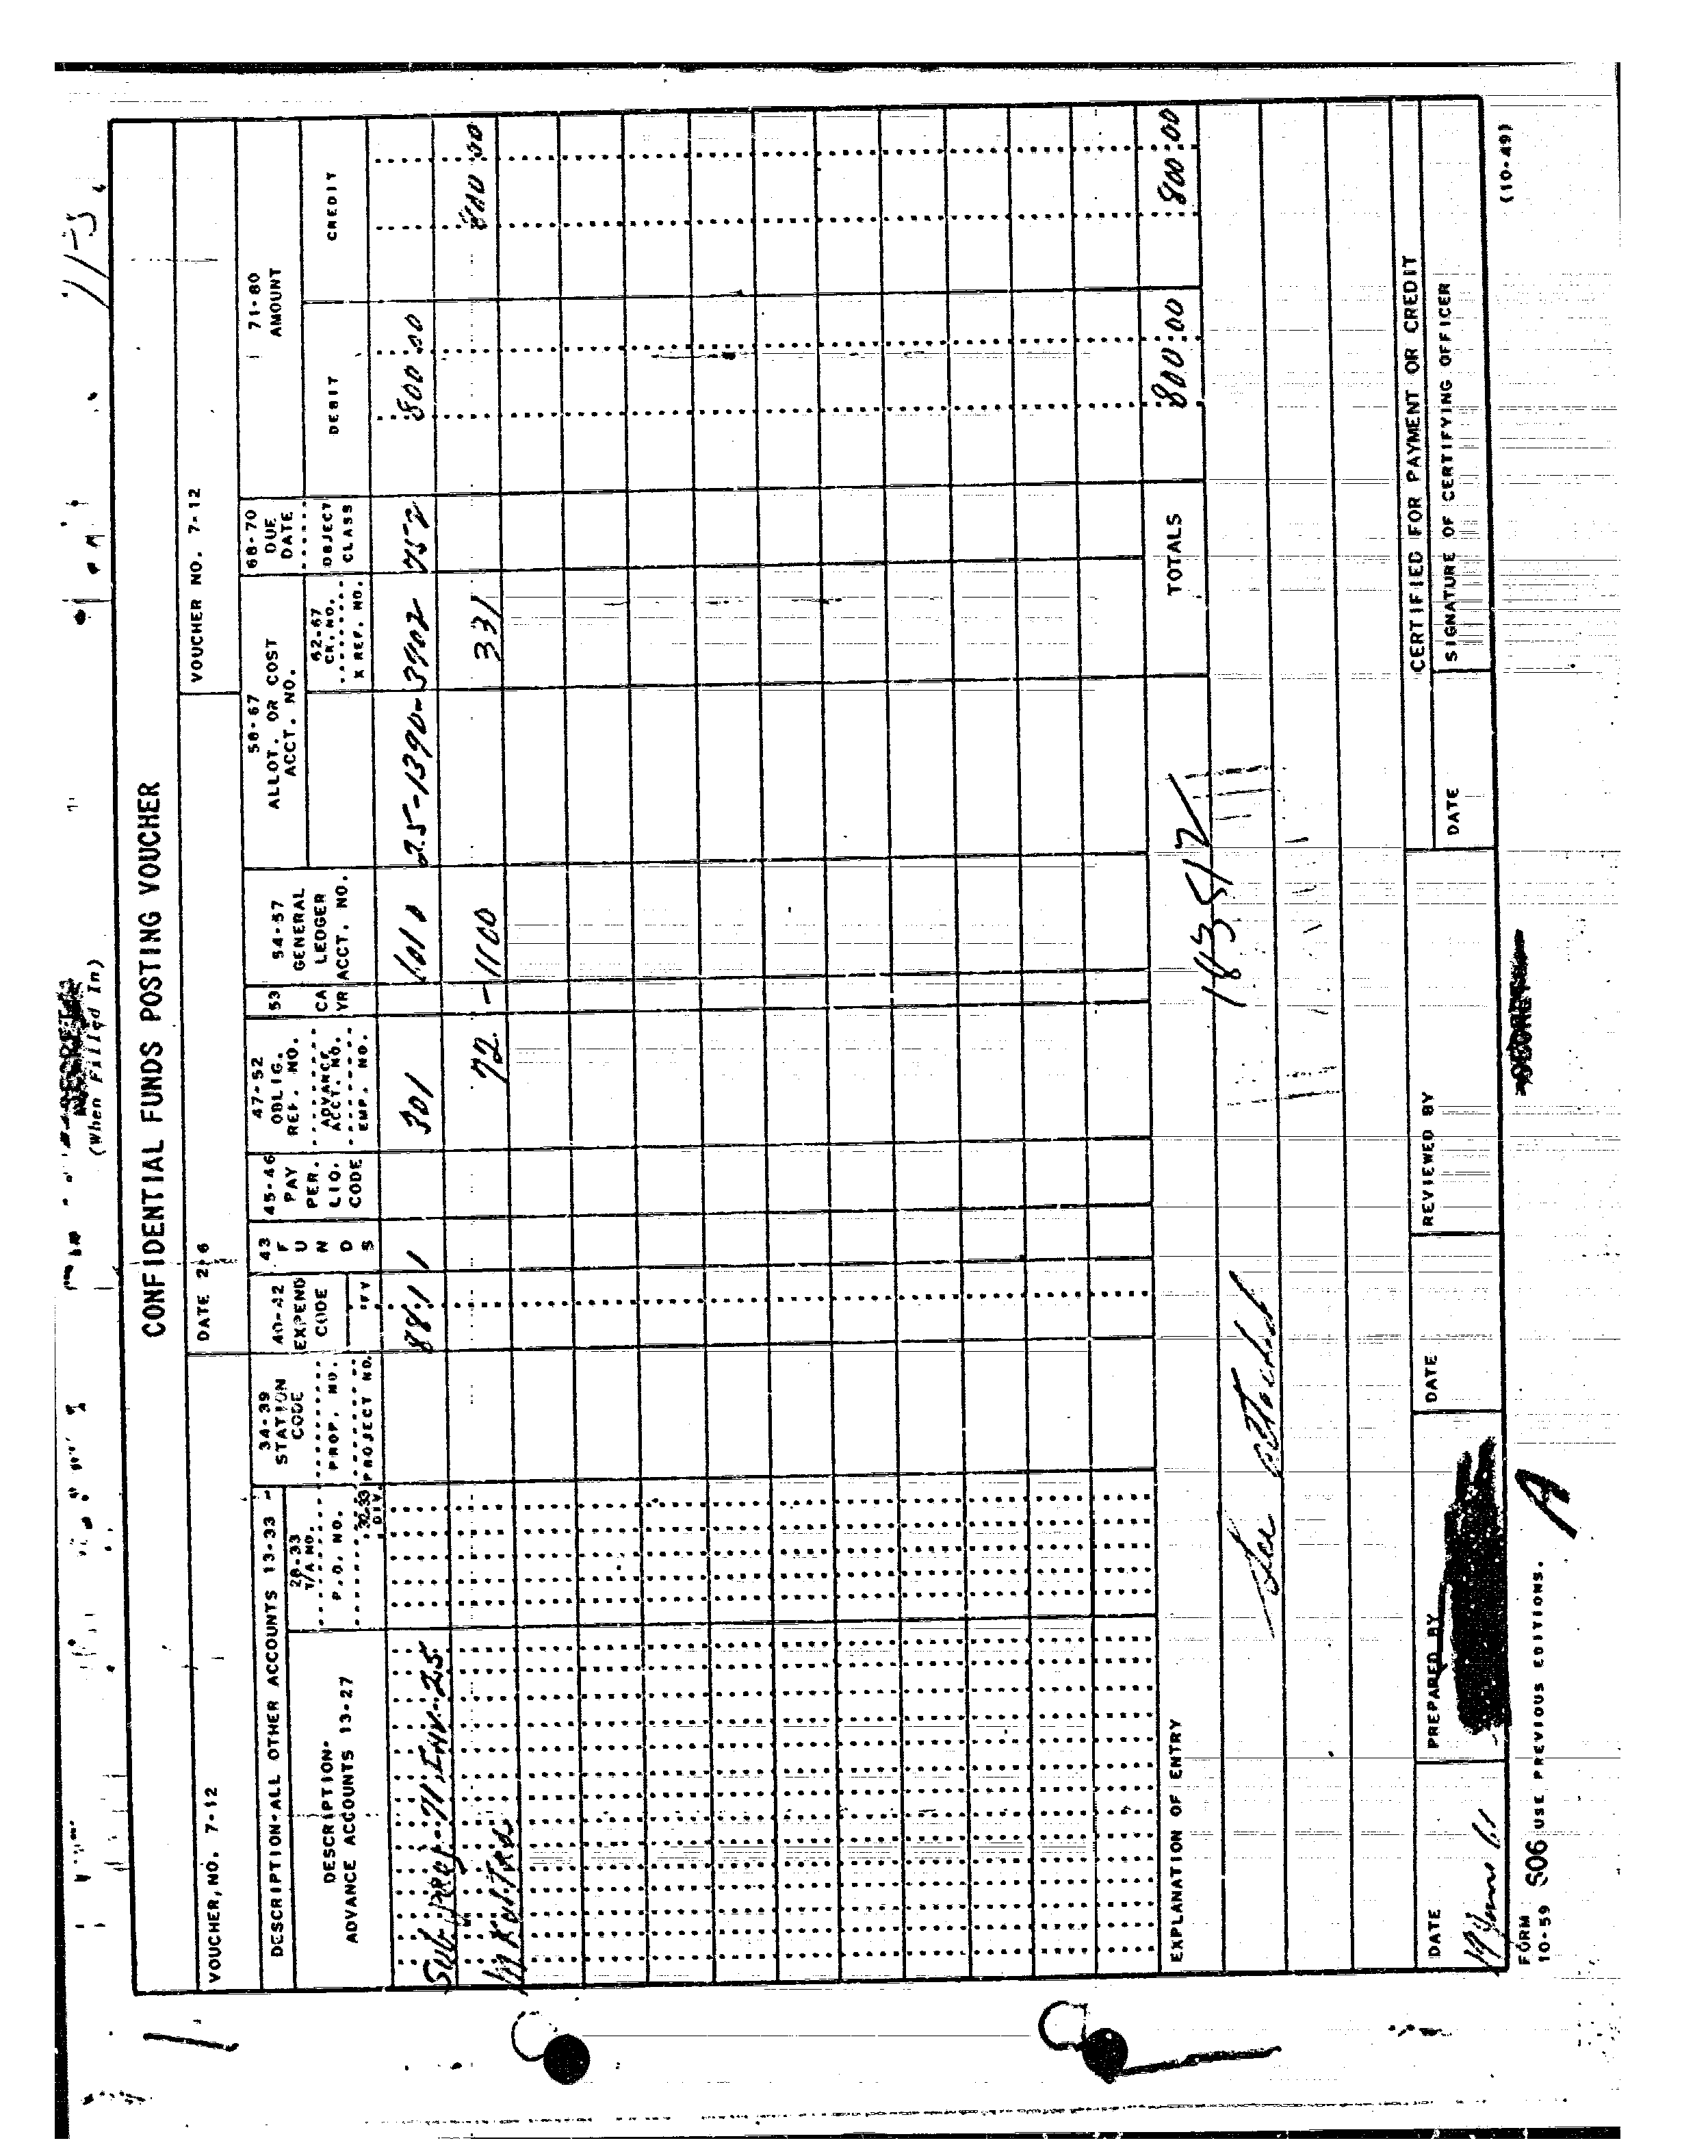 (When Filled In)
CONFIDENTIAL FUNDS POSTING VOUCHER
VOUCHER, NO. 7-12 DATE 2-6 VOUCHER NO. 7-12
DESCRIPTION-ALL OTHER ACCOUNTS 13-33
DESCRIPTION-
ADVANCE ACCOUNTS 13-27
28-33
T/A NO.
P.O. NO.
32-33
DIV.
34-39
STATION
CODE
PROP. NO.
PROJECT NO.
40-42
EXPEND
CODE
43
F
U
N
D
S
45-46
PAY
PER.
LIQ.
CODE
47-52
OBLIG.
REF. NO.
ADVANCE
ACCT. NO.
EMP. NO.
53
CA
YR
54-57
GENERAL
LEDGER
ACCT. NO.
58-67
ALLOT. OR COST
ACCT. NO.
62-67
CK. NO.
X REF. NO.
68-70
DUE
DATE
OBJECT
CLASS
71-80
AMOUNT
DEBIT CREDIT
Sub Proj. 71, Inv. 25 88 1 1 301 25-1390-3902 752 800.00
72 - 1100 331 800 00
EXPLANATION OF ENTRY TOTALS 800.00 800.00
See attached
CERTIFIED FOR PAYMENT OR CREDIT
DATE PREPARED BY DATE REVIEWED BY DATE SIGNATURE OF CERTIFYING OFFICER
FORM
10-59 506 USE PREVIOUS EDITIONS. A (10-49)